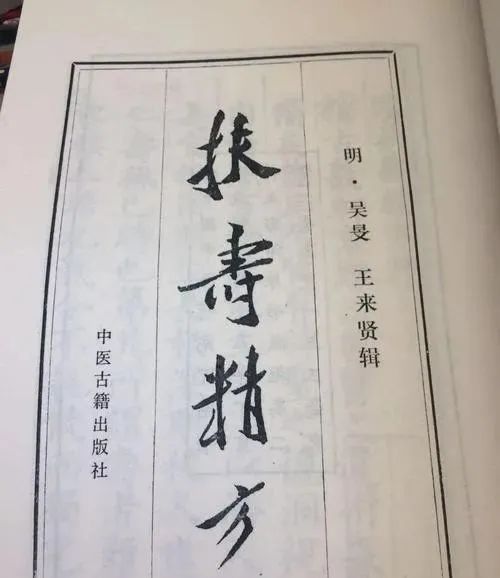 明·吴旻 王来贤辑
扶寿精方
中医古籍出版社